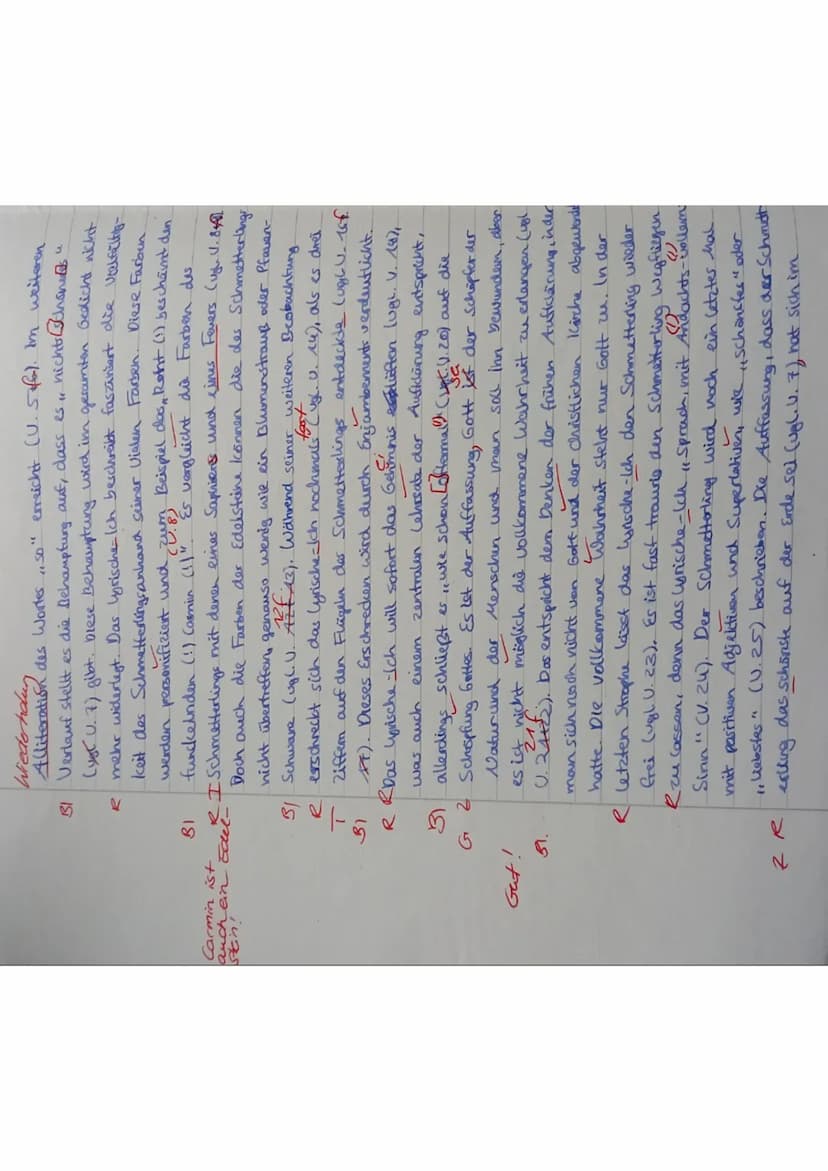 Wiederholung
Alliteration des Wortes „so" erreicht (V. 5f). Im weiteren
Bl Verlauf stellt es die Behauptung auf, dass es „nicht [s] schöners"
(vgl. V. 7) gibt. Diese Behauptung wird im gesamten Gedicht nicht
R mehr widerlegt. Das Lyrische-Ich beschreibt fasziniert die Vielfältig-
keit des Schmetterlings anhand seiner vielen Farben. Diese Farben
werden personifiziert und zum Beispiel das „Roht (!) bescheint den
(V.8)
Bl funckelnden (!) Carmin (!)". Es vergleicht die Farben des
Carmin ist auch ein Edel-stein!
R I Schmetterlings mit denen eines Saphirs und eines Feuers (vgl. V.
Doch auch die Farben der Edelsteine können die des Schmetterlings
nicht übertreffen, genauso wenig wie ein Blumenstrauß oder Pfauen-
12f
Bl Schwanz (vgl. V. 13). Während seiner weiteren Beobachtung
fast
R erschreckt sich das Lyrische-Ich nochmals (vgl. V. 14), als es drei
I Ziffern auf den Flügeln des Schmetterlings entdeckte (vgl. V. 16f
Bl 17). Dieses Erschrecken wird durch Enjambements verdeutlicht.
R R Das Lyrische-Ich will sofort das Geheimnis lüften (vgl. V. 18),
was auch einem zentralen Lehrsatz der Aufklärung entspricht,
Bl allerdings schließt es „wie schon [o]ftermal (!)" (vgl. V. 20) auf die
G Z Schöpfung Gottes. Es ist der Auffassung, Gott ist der Schöpfer der
sei
Natur und der Menschen und man soll ihn bewundern, aber
Gut! es ist nicht möglich die vollkommene Wahrheit zu erlangen (vgl.
21f
Bl. V. 21+22). Das entspricht dem Denken der frühen Aufklärung, in der
man sich noch nicht von Gott und der christlichen Kirche abgewandt
hatte. Die vollkommene Wahrheit steht nur Gott zu. In der
R letzten Strophe lässt das Lyrische-Ich den Schmetterling wieder
frei (vgl. V. 23). Es ist fast traurig den Schmetterling wegfliegen
R zu lassen, denn das Lyrische-Ich „sprach, mit (!) Andachts-vollem (!)
Sinn" (V. 24). Der Schmetterling wird noch ein letztes Mal
mit positiven Adjektiven und Superlativen, wie „schönster" oder
„liebstes" (V. 25) beschrieben. Die Auffassung, dass der Schmett-
Z R erling das schönste auf der Erde sei (vgl. V. 7), hat sich im